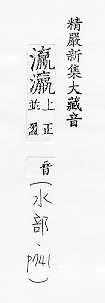 精嚴新集大藏音
瀛瀛
上正
並盈
音
(水部、p741)